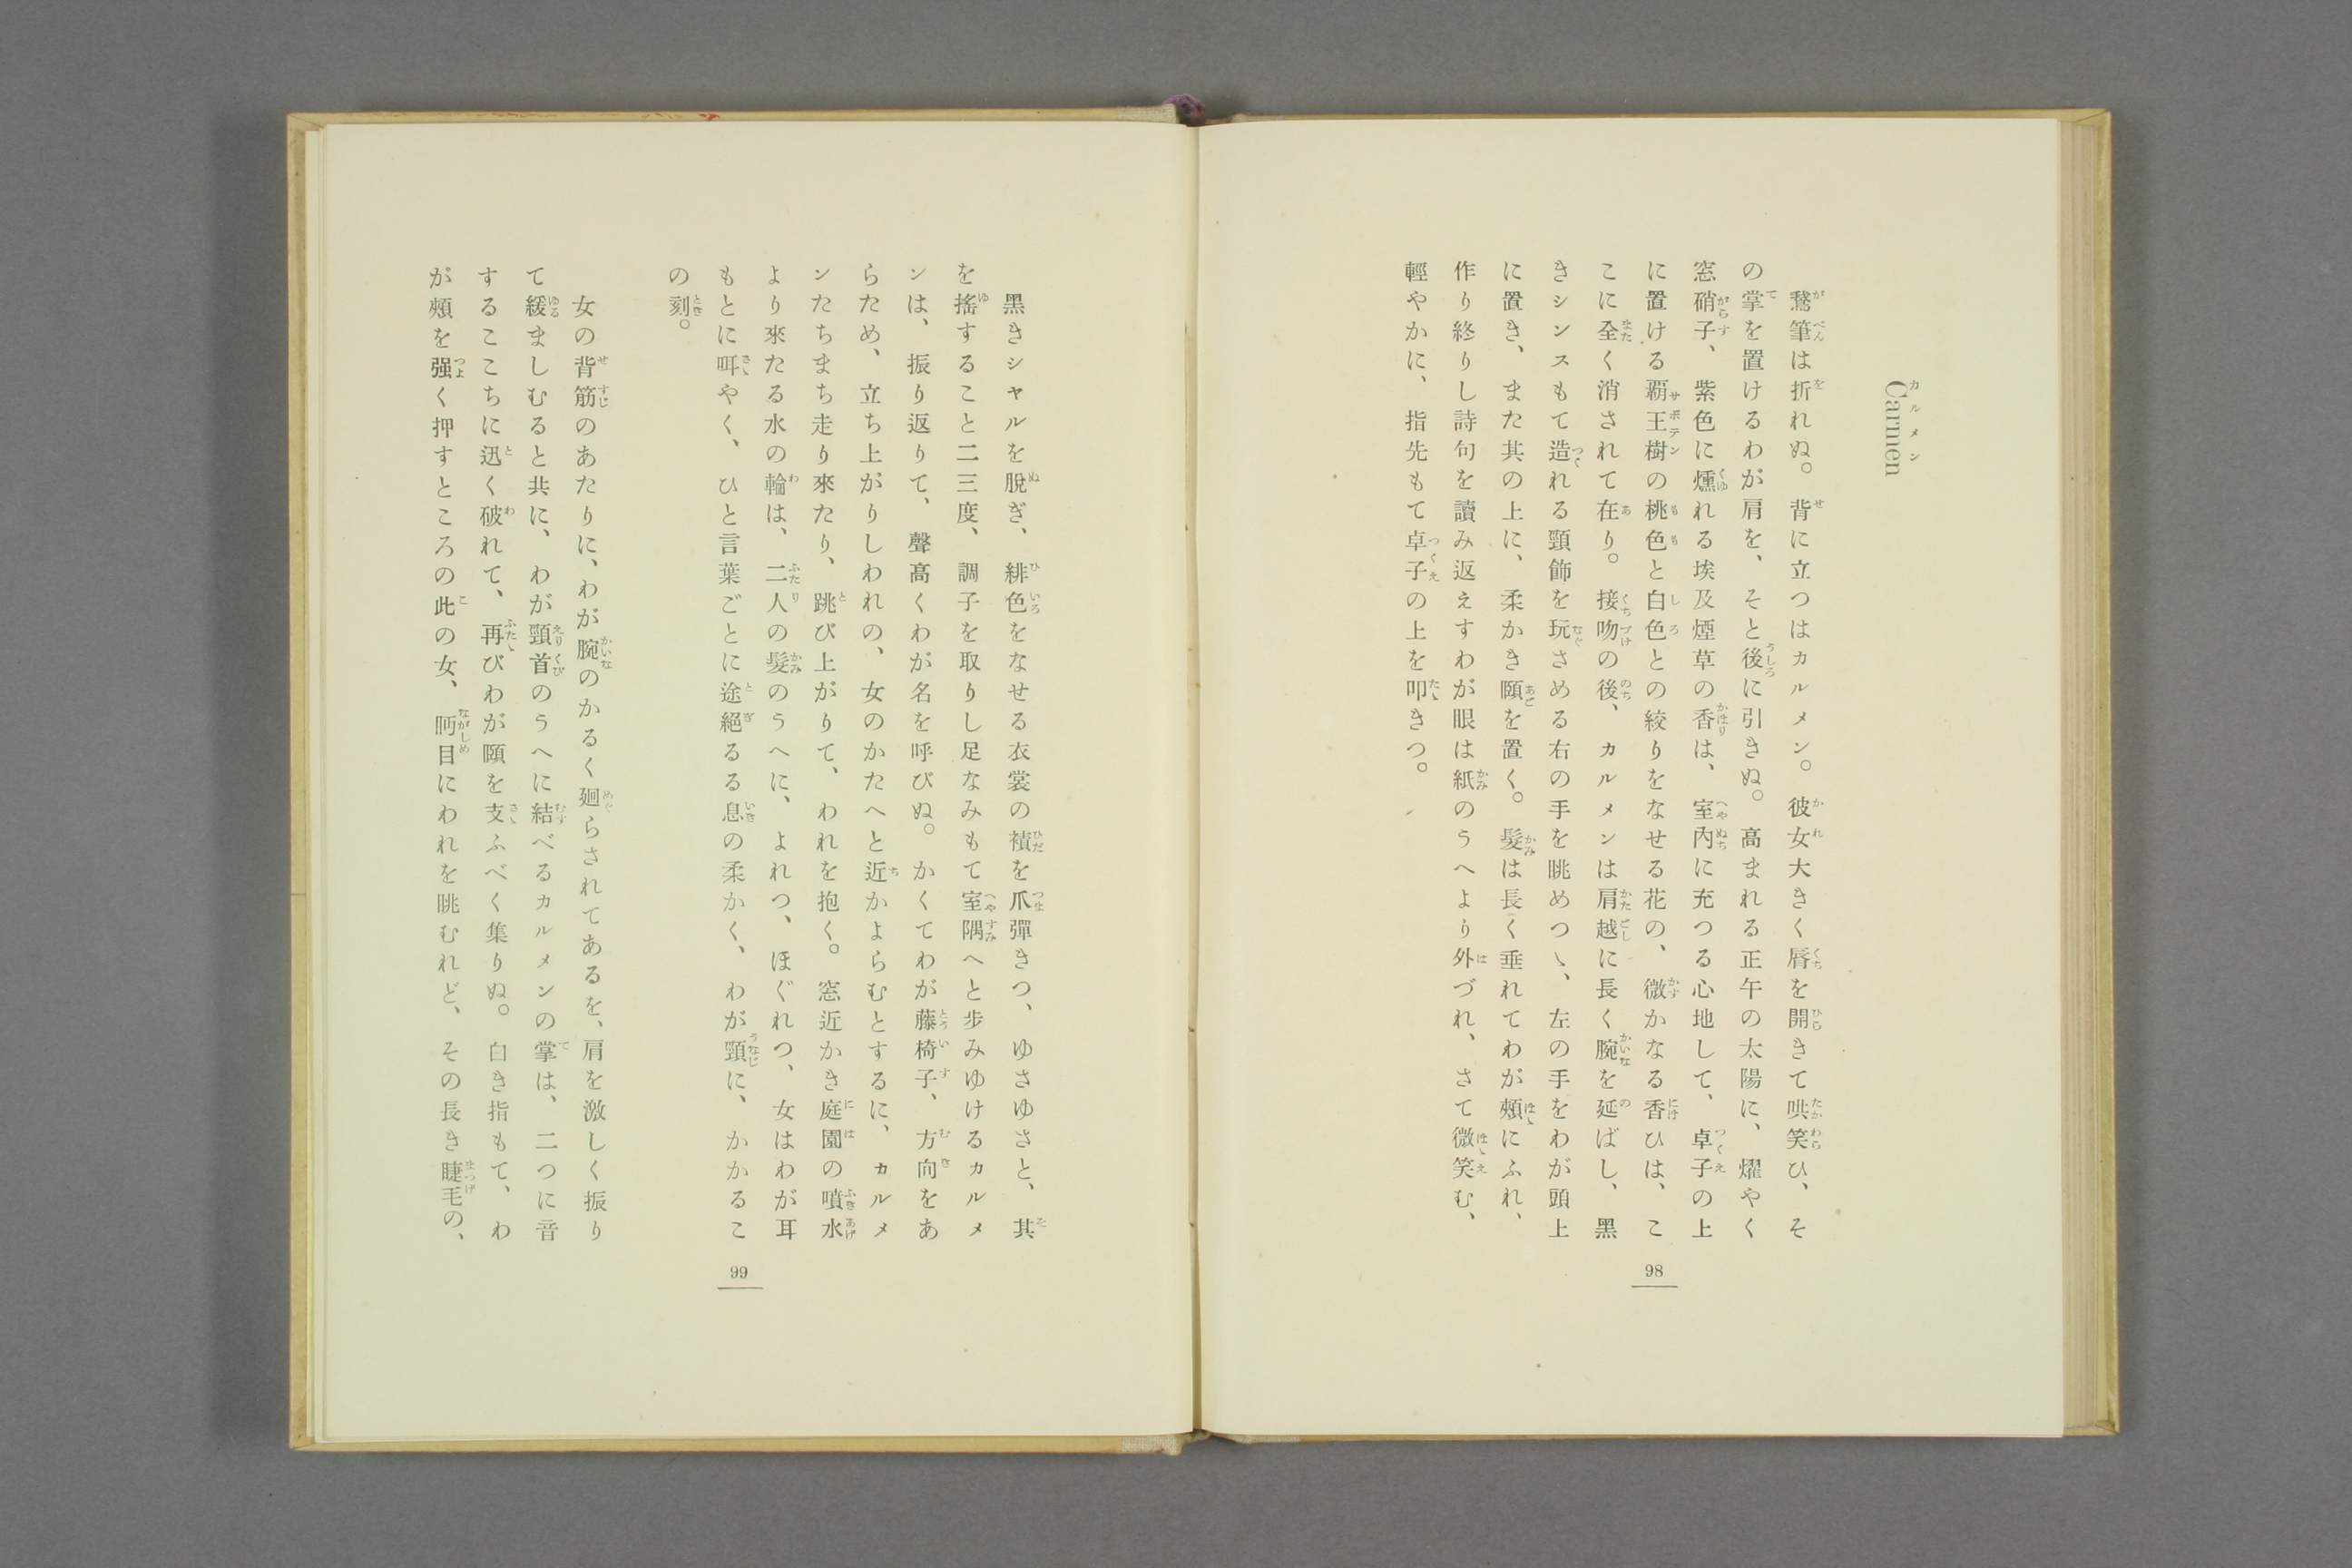 Carmen
鵞筆は折れぬ。背に立つはカルメン。彼女大きく唇を開きて哄笑ひ、そ
の掌を置けるわが肩を、そと後に引きぬ。高まれる正午の太陽に、燿やく
窓硝子、紫色に燻れる埃及煙草の香は、室內に充つる心地して、卓子の上
に置ける覇王樹の桃色と白色との絞りをなせる花の、微かなる香ひは、こ
こに全く消されて在り。接吻の後、カルメンは肩越に長く腕を延ばし、黑
きシンスもて造れる頸飾を玩さめる右の手を眺めつゝ、左の手をわが頭上
に置き、また其の上に、柔かき頤を置く。髮は長く垂れてわが頰にふれ、
作り終りし詩句を讀み返えすわが眼は紙のうへより外づれ、さて微笑む、
輕やかに、指先もて卓子の上を叩きつ。
98
黑きシャルを脫ぎ、緋色をなせる衣裳の襀を爪彈きつ、ゆさゆさと、其
を搖すること二三度、調子を取りし足なみもて室隅へと步みゆけるカルメ
ンは、振り返りて、聲高くわが名を呼びぬ。かくてわが藤椅子、方向をあ
らため、立ち上がりしわれの、女のかたへと近かよらむとするに、カルメ
ンたちまち走り來たり、跳び上がりて、われを抱く。窓近かき庭園の噴水
より來たる水の輪は、二人の髮のうへに、よれつ、ほぐれつ、女はわが耳
もとに咡やく、ひと言葉ごとに途絕るる息の柔かく、わが頸に、かかるこ
の刻。
女の背筋のあたりに、わが腕のかるく廻らされてあるを、肩を激しく振り
て緩ましむると共に、わが頸首のうへに結べるカルメンの掌は、二つに音
するここちに迅く破れて、再びわが頤を支ふべく集りぬ。白き指もて、わ
が頰を强く押すところの此の女、眄目にわれを眺むれど、その長き睫毛の、
99